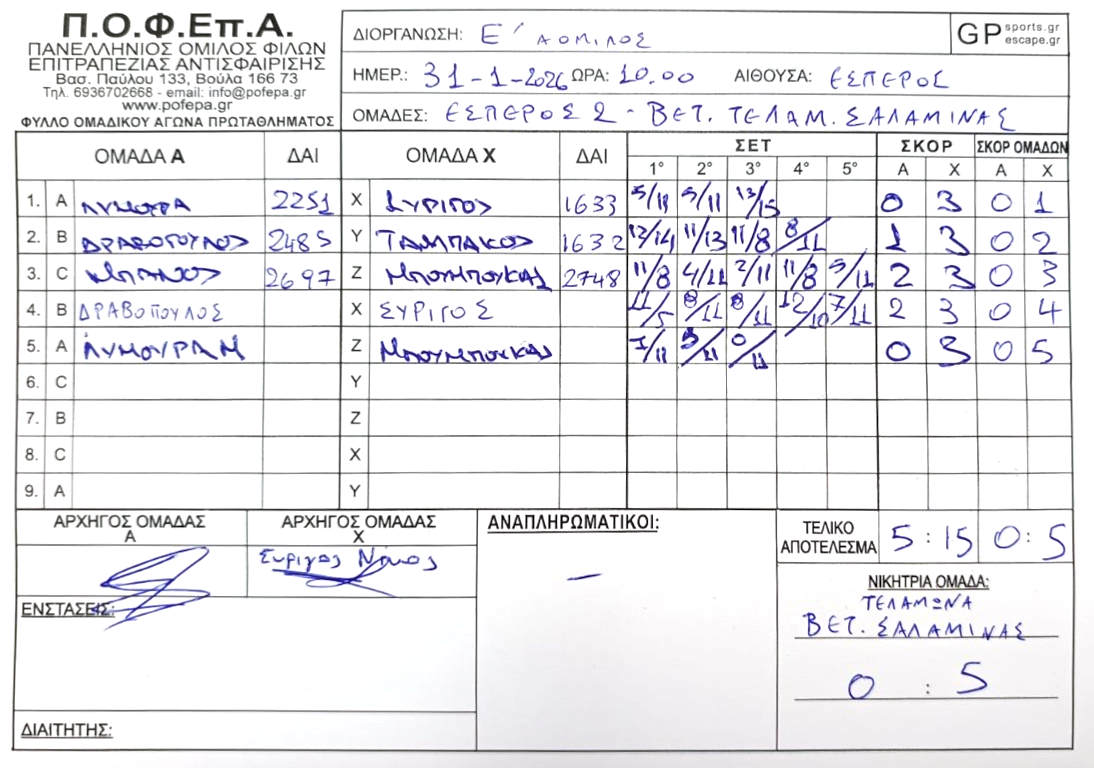 Π.Ο.Φ.Επ.Α.
ΠΑΝΕΛΛΗΝΙΟΣ ΟΜΙΛΟΣ ΦΙΛΩΝ
ΕΠΙΤΡΑΠΕΖΙΑΣ ΑΝΤΙΣΦΑΙΡΙΣΗΣ
Βασ. Παύλου 133, Βούλα 166 73
Τηλ. 6936702668 - email: info@pofepa.gr
www.pofepa.gr
ΦΥΛΛΟ ΟΜΑΔΙΚΟΥ ΑΓΩΝΑ ΠΡΩΤΑΘΛΗΜΑΤΟΣ
ΔΙΟΡΓΑΝΩΣΗ: Ε' ΑΟΜΙΛΟΣ
GP sports.gr escape.gr
ΗΜΕΡ.: 31-1-2026 ΩΡΑ: 10.00 ΑΙΘΟΥΣΑ: ΕΣΠΕΡΟΣ
ΟΜΑΔΕΣ: ΕΣΠΕΡΟΣ 2 - ΒΕΤ. ΤΕΛΑΜ. ΣΑΛΑΜΙΝΑΣ
ΟΜΑΔΑ Α ΔΑΙ ΟΜΑΔΑ Χ ΔΑΙ ΣΕΤ ΣΚΟΡ ΣΚΟΡ ΟΜΑΔΩΝ
1° 2° 3° 4° 5° Α Χ Α Χ
1. A ΛΥΜΟΥΡΑ 2251 X ΣΥΡΙΓΟΣ 1633 5/11 5/11 13/15 0 3 0 1
2. B ΔΡΑΒΟΠΟΥΛΟΣ 2485 Y ΤΑΜΠΑΚΟΣ 1632 12/14 11/13 11/8 8/11 1 3 0 2
3. C ΜΠΑΝΟΣ 2697 Z ΜΠΟΥΜΠΟΥΚΑΣ 2748 11/8 4/11 2/11 11/8 5/11 2 3 0 3
4. B ΔΡΑΒΟΠΟΥΛΟΣ X ΣΥΡΙΓΟΣ 11/5 8/11 8/11 12/10 7/11 2 3 0 4
5. A ΛΥΜΟΥΡΑ Z ΜΠΟΥΜΠΟΥΚΑΣ 7/11 3/11 0/11 0 3 0 5
6. C Y
7. B Z
8. C X
9. A Y
ΑΡΧΗΓΟΣ ΟΜΑΔΑΣ Α ΑΡΧΗΓΟΣ ΟΜΑΔΑΣ Χ ΑΝΑΠΛΗΡΩΜΑΤΙΚΟΙ: ΤΕΛΙΚΟ ΑΠΟΤΕΛΕΣΜΑ 5 : 15 0 : 5
Συριγος Νικος
ΝΙΚΗΤΡΙΑ ΟΜΑΔΑ:
ΤΕΛΑΜΩΝΑ
ΒΕΤ. ΣΑΛΑΜΙΝΑΣ
0 : 5
ΕΝΣΤΑΣΕΙΣ:
ΔΙΑΙΤΗΤΗΣ: